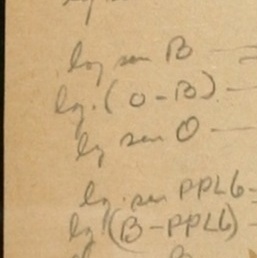 log sen B
lg. (O-B)
lg sen O
lg. sen PPL6
lg (B-PPL6)